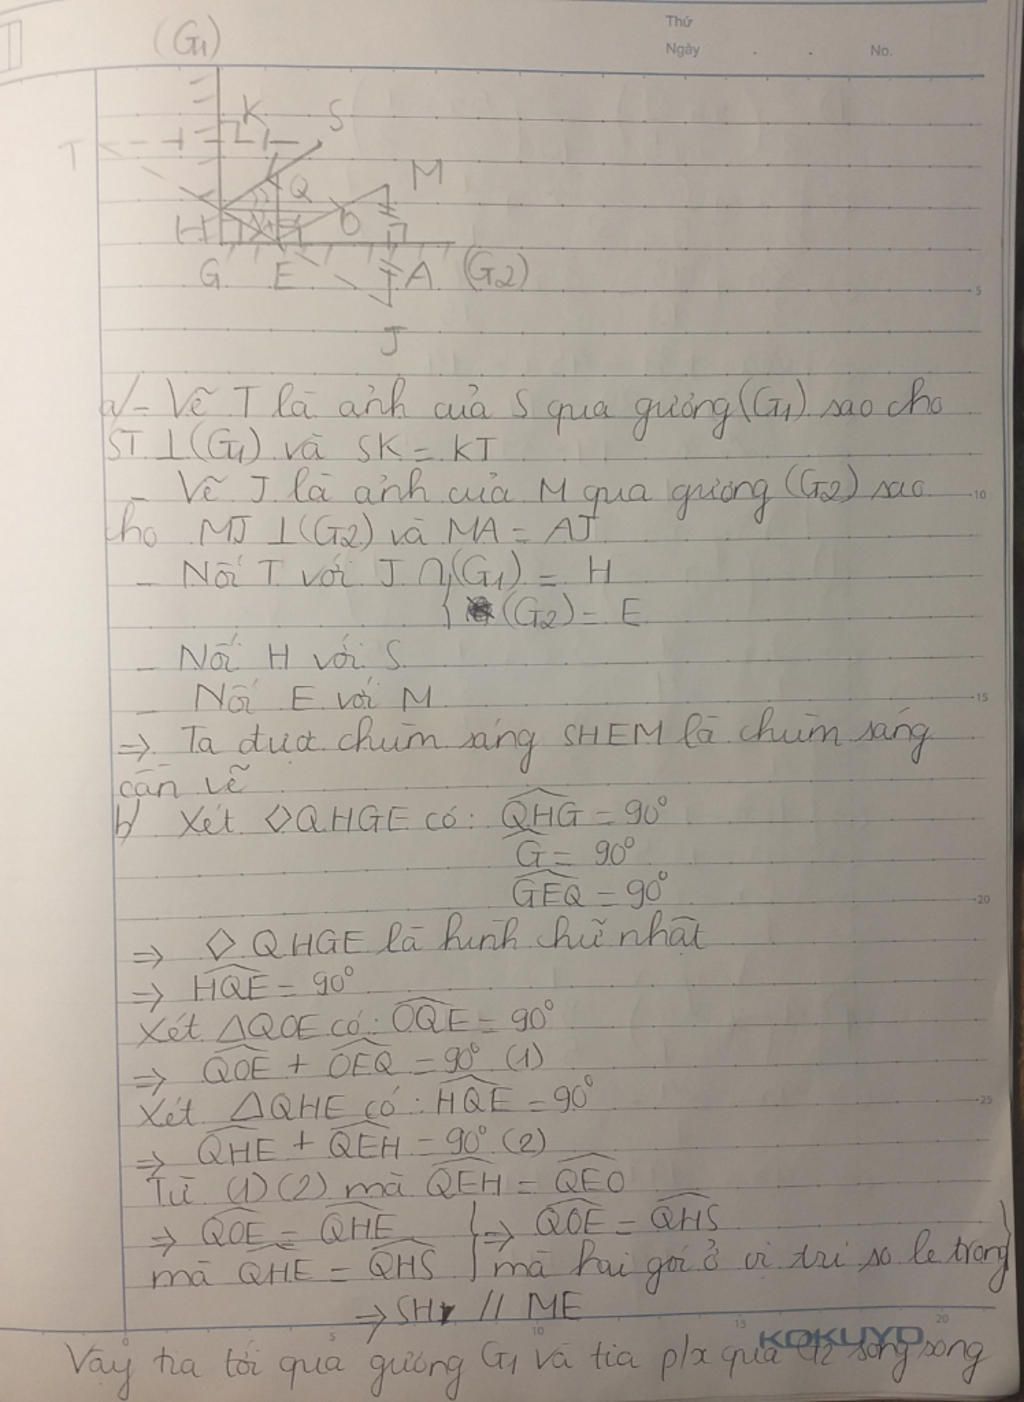 Thứ
Ngày . . No.
(G1)
K S
T
Q M
H O
G E A (G2)
J
5
a/ - Vẽ T là ảnh của S qua gương (G1) sao cho
ST ⊥ (G1) và SK = KT
- Vẽ J là ảnh của M qua gương (G2) sao 10
cho MJ ⊥ (G2) và MA = AJ
- Nối T với J ∩ (G1) = H
(G2) = E
- Nối H với S
- Nối E với M 15
=> Ta đưọt chùm sáng SHEM là chùm sáng
cần vẽ
b/ Xét ◇QHGE có: \widehat{QHG} = 90°
\widehat{G} = 90°
\widehat{GEQ} = 90°
20
=> ◇ QHGE là hình chữ nhật
=> \widehat{HQE} = 90°
Xét △QOE có: \widehat{OQE} = 90°
=> \widehat{QOE} + \widehat{OEQ} = 90° (1)
Xét △QHE có: \widehat{HQE} = 90° 25
=> \widehat{QHE} + \widehat{QEH} = 90° (2)
Từ (1) (2) mà \widehat{QEH} = \widehat{QEO}
=> \widehat{QOE} = \widehat{QHE} } => \widehat{QOE} = \widehat{QHS}
mà \widehat{QHE} = \widehat{QHS} mà hai gói ở vị trí so le trong
=> SH // ME
0 5 10 15 20
KOKUYO
Vậy tia tới qua gương G1 và tia p/x qua G2 song song